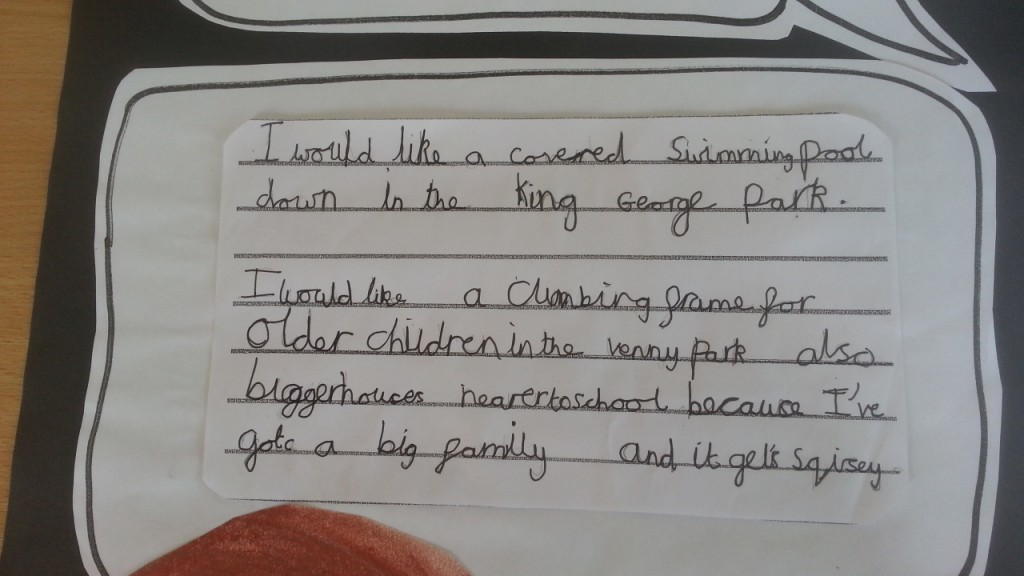 I would like a covered Swimming pool
down in the King George Park.
I would like a Climbing frame for
Older children in the venny park also
bigger houces nearer to school because I've
gotc a big family and it gets sqisey